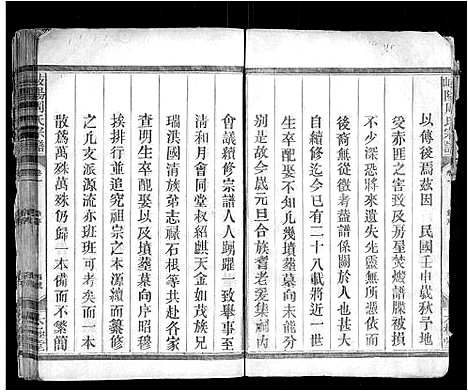 岐陽周氏宗譜
以傳後焉茲因　民國壬申歲秋予地
受赤匪之害致及房屋焚燬譜牒被損
不少深恐將來遺失先靈無所憑依而
後裔無從徵考葢譜係關於人也甚大
自續修迄今已有二十八載將近一世
生卒配娶不知凡幾墳塋墓向未能分
別是故今歲元旦合族耆老爰集祠內
會議續修宗譜人人踴躍一致舉事至
清和月會同堂叔紹麒天金如茂族兄
瑞洪清族弟志祿石根等共赴各家
歷以生卒配娶以及墳塋墓向序昭穆
挨排行並追究祖宗之本源續而纂修
之凡支派源流亦班班可考矣而一本
散爲萬殊萬殊仍歸一本備而不繁簡
岐陽周氏宗譜